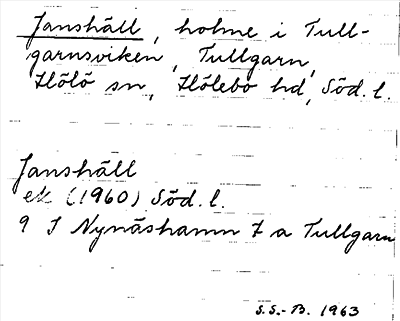 Janshäll, holme i Tull-
garnsviken, Tullgarn,
Hölö sn, Hölebo hd, Söd. l.
Janshäll
ek (1960) Söd. l.
9 I Nynäshamn 7 a Tullgarn
S.S.-B. 1963